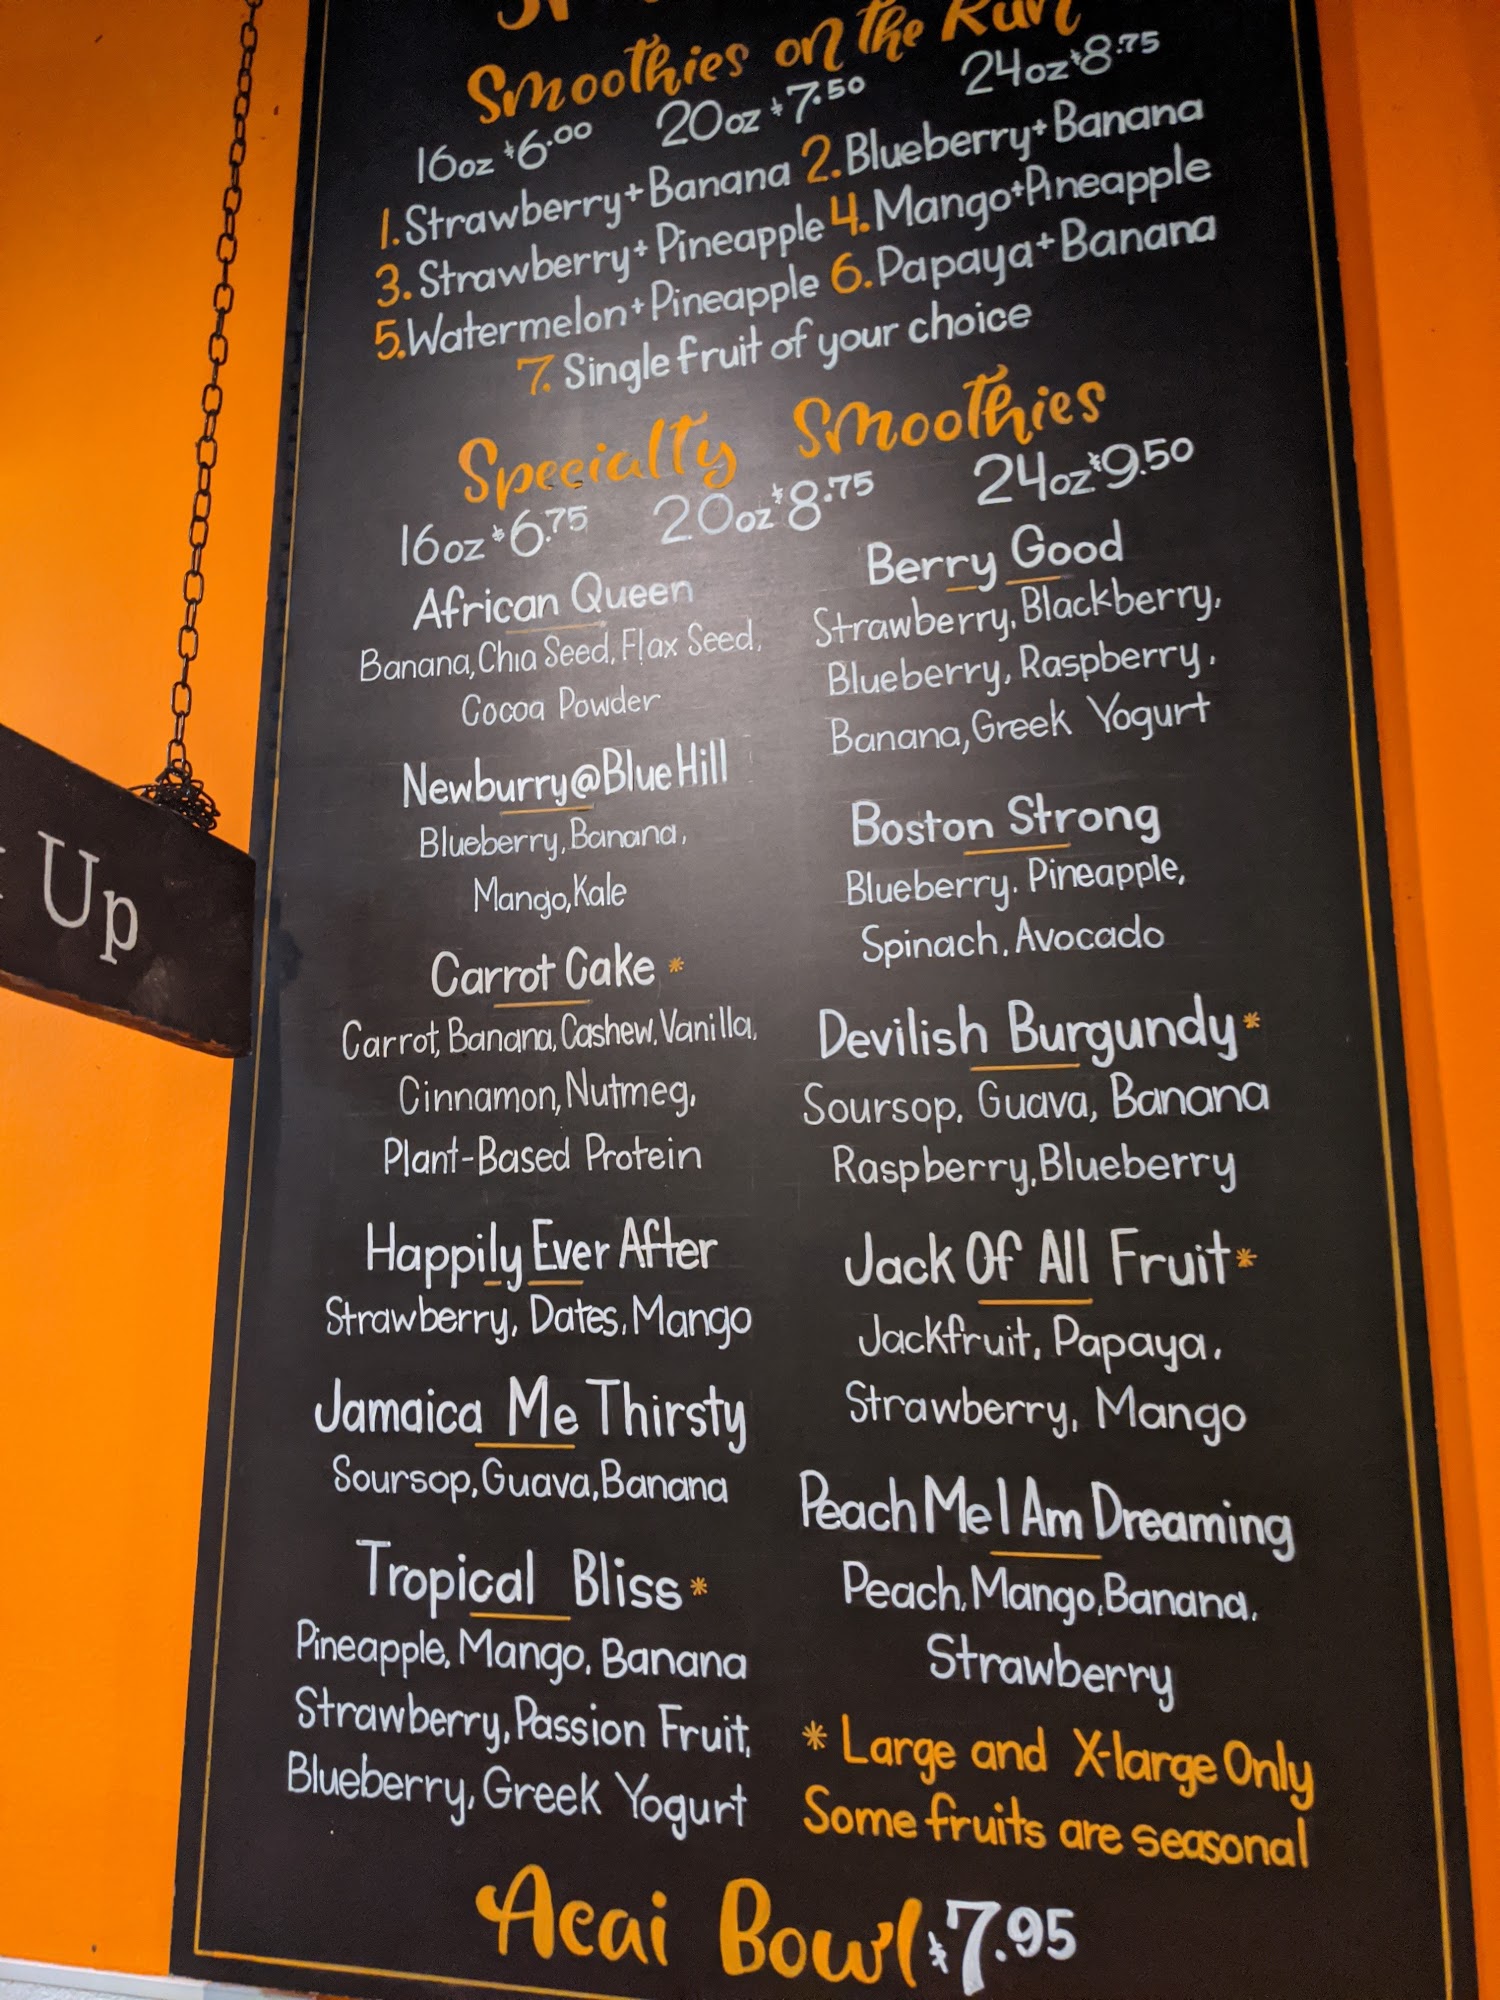 Smoothies on the Run
16oz $6.00 20oz $7.50 24oz $8.75
1. Strawberry + Banana 2. Blueberry + Banana
3. Strawberry + Pineapple 4. Mango + Pineapple
5. Watermelon + Pineapple 6. Papaya + Banana
7. Single fruit of your choice
Specialty Smoothies
16oz $6.75 20oz $8.75 24oz $9.50
African Queen
Banana, Chia Seed, Flax Seed,
Cocoa Powder
Newburry@Blue Hill
Blueberry, Banana,
Mango, Kale
Carrot Cake *
Carrot, Banana, Cashew, Vanilla,
Cinnamon, Nutmeg,
Plant-Based Protein
Happily Ever After
Strawberry, Dates, Mango
Jamaica Me Thirsty
Soursop, Guava, Banana
Tropical Bliss *
Pineapple, Mango, Banana
Strawberry, Passion Fruit,
Blueberry, Greek Yogurt
Berry Good
Strawberry, Blackberry,
Blueberry, Raspberry,
Banana, Greek Yogurt
Boston Strong
Blueberry, Pineapple,
Spinach, Avocado
Devilish Burgundy *
Soursop, Guava, Banana
Raspberry, Blueberry
Jack Of All Fruit *
Jackfruit, Papaya,
Strawberry, Mango
Peach Me I Am Dreaming
Peach, Mango, Banana,
Strawberry
* Large and X-large Only
Some fruits are seasonal
Acai Bowl $7.95
Up